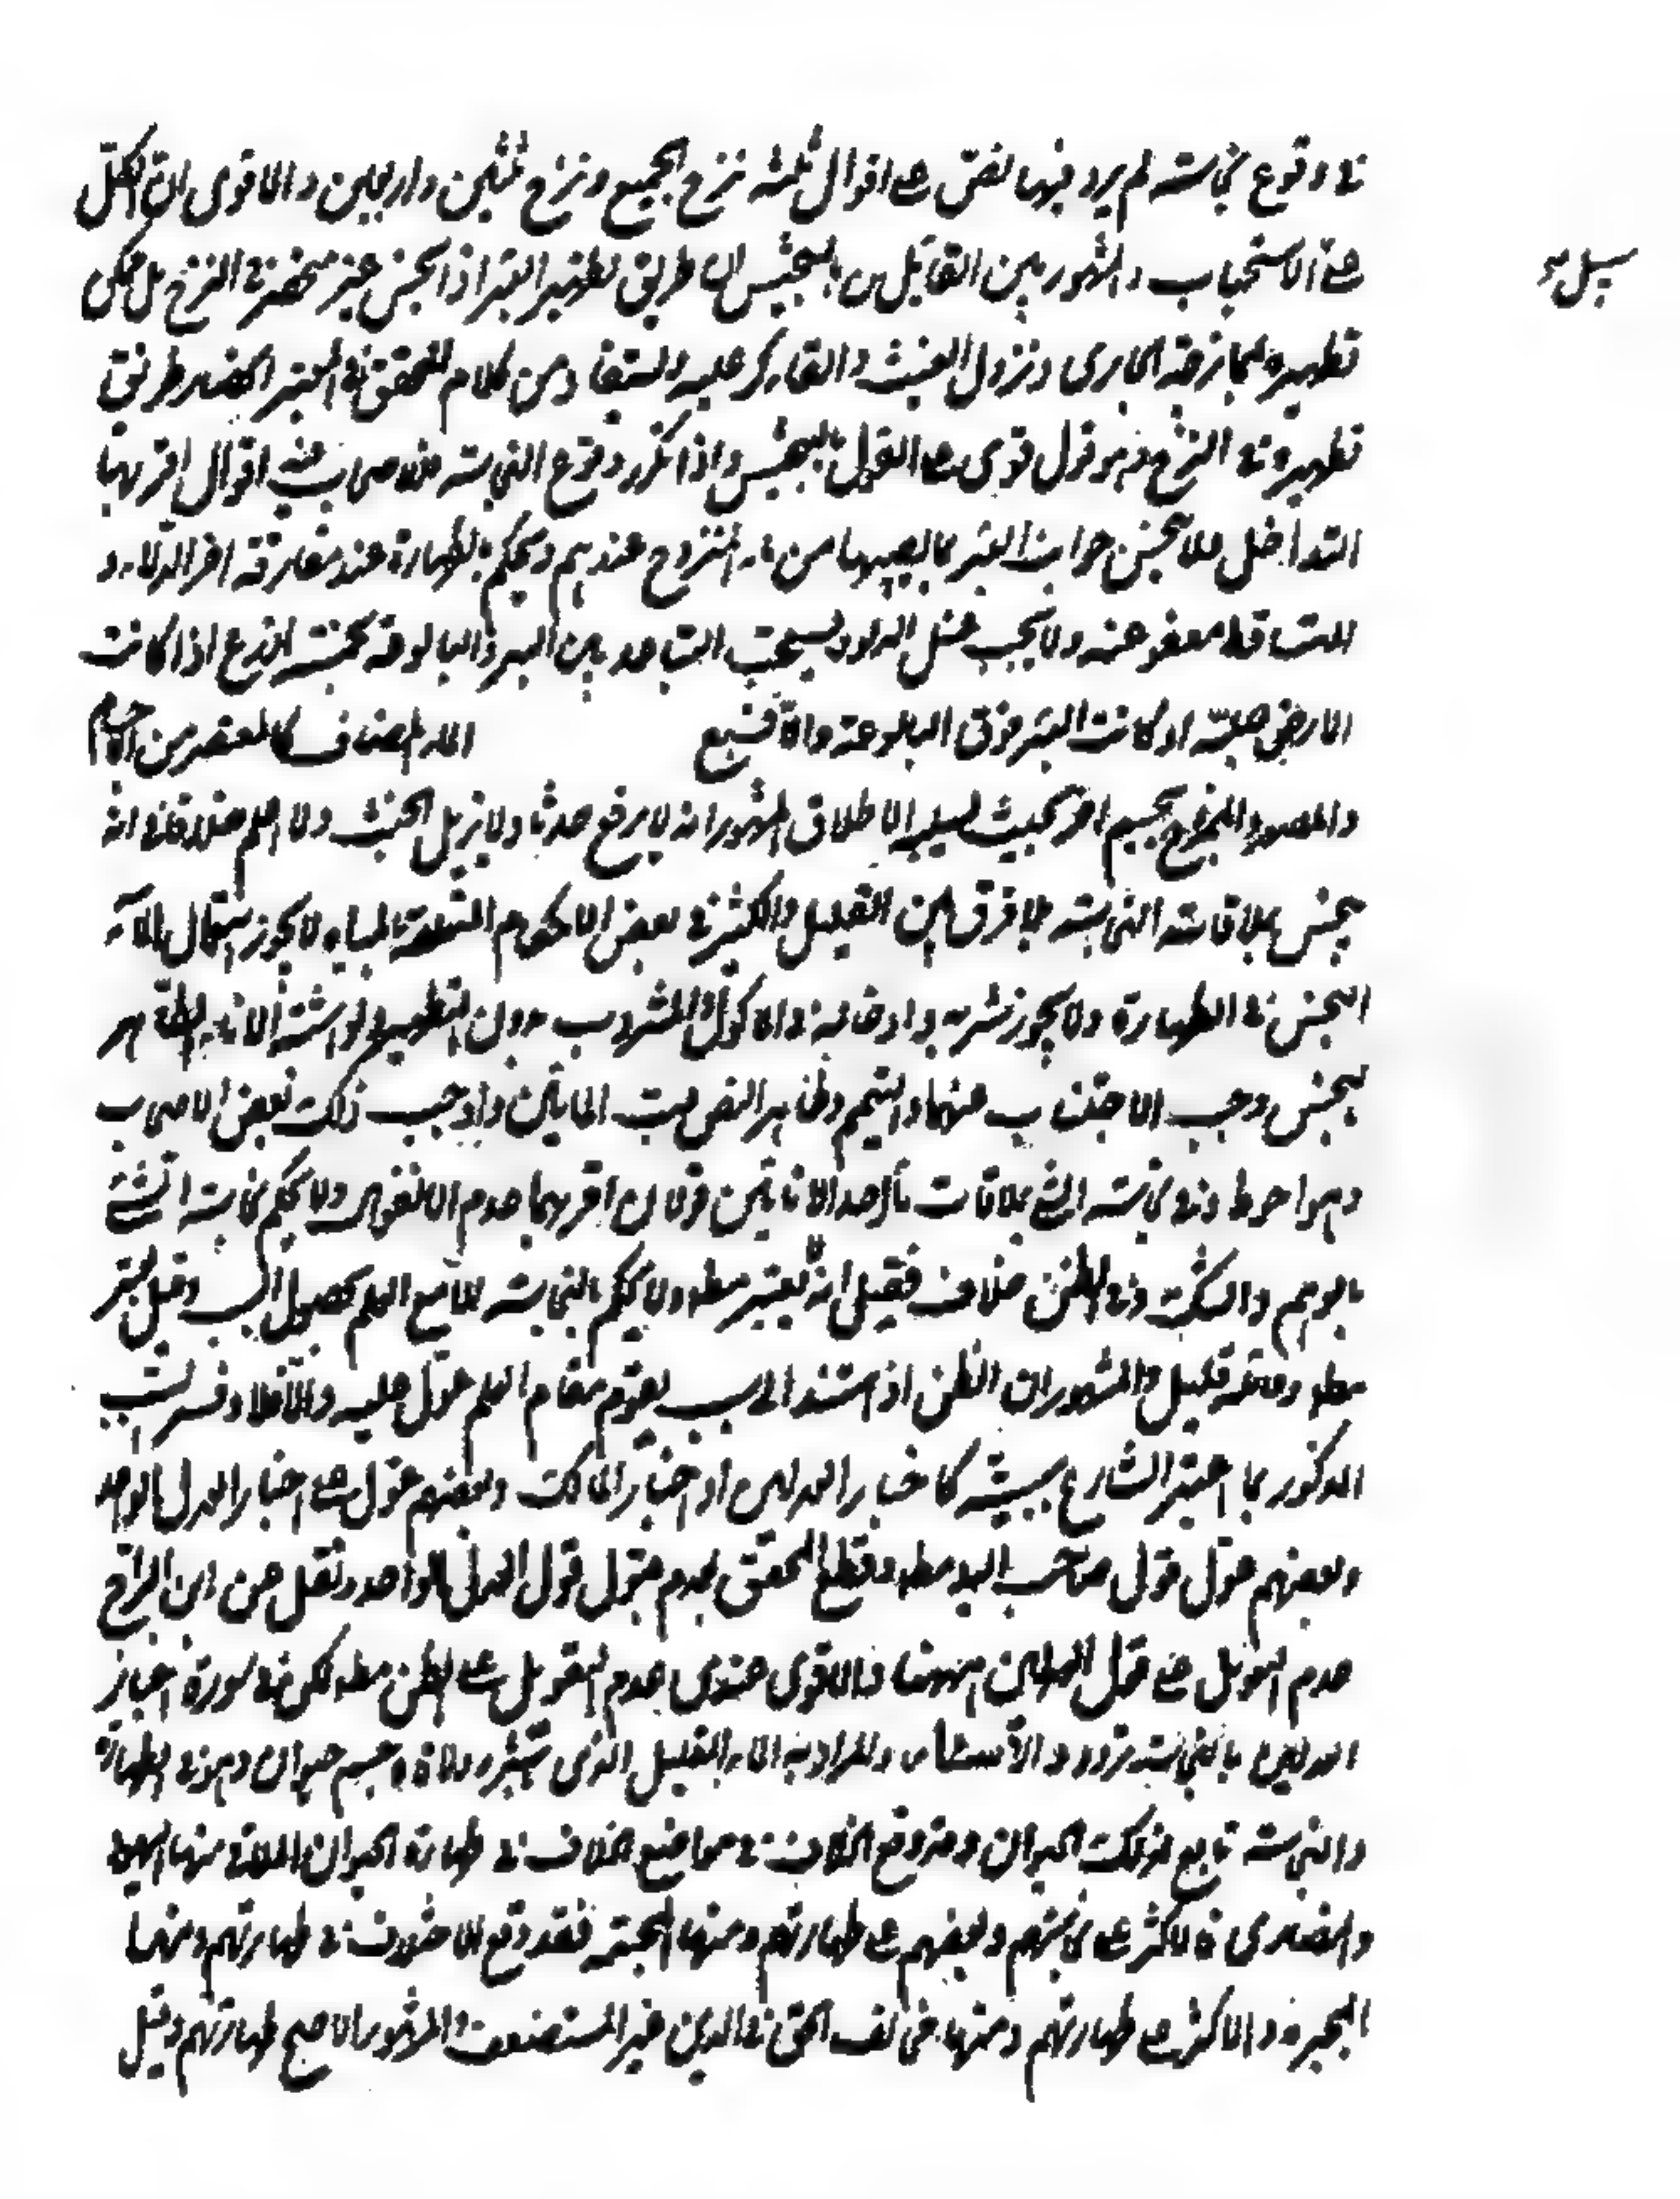 فى وقوع نجاسته لم يرد فيها نص على اقوال ثلثه نزح الجميع ونزح ثلثين واربعين والاقوى ان الكل
على الاستحباب والمشهور بين القائلين بالتنجيس ان طريق تطهير البئر اذا نجس غير منحصر فى النزح بل يمكن
تطهيره بممازجة الجارى ونزول الغيث والقاء كر عليه ويستفاد من كلام المحقق فى المعتبر انحصار طريق
تطهيره فى النزح وهو قول قوى على القول بالتنجيس واذا تكرر وقوع النجاسته فللاصحاب فيه اقوال اقربها
التداخل ولا ينجس جوانب البئر بما يصيبها من ماء المنزوح عندهم ويحكم بالطهارة عند مفارقة اخر الدلاء و
المتساقط معفو عنه ولا يجب غسل الدلو ويستحب التباعد بين البئر والبالوعة بخمسة اذرع اذا كانت
الارض صلبة او كانت البئر فوق البالوعة والا فسبع الماء المضاف كالمعتصر من الاجسام
والمصعد والممزوج بجسم اخر بحيث يسلبه الاطلاق المشهور انه لا يرفع حدثا ولا يزيل الخبث ولا اعلم خلافا فى انه
ينجس بملاقاته النجاسته بلا فرق بين القليل والكثير فى بعض الاحكام المتعلقة بالمياه لا يجوز استعمال الماء
النجس فى الطهارة ولا يجوز شربه وادخاله فى الماكول والمشروب بدون التطهير ولو اشتبه الاناء الطاهر
بنجس وجب الاجتناب عنهما والتيمم وظاهر النص صب المائين واوجب ذلك بعض الاصحاب
وهو احوط وفى نجاسته الشئ بملاقات باحد الانائين قولان اقربهما عدم الانفعال ولا يحكم بنجاسته الشئ
بالوهم والشك وفى الظن خلاف فقيل انه يعتبر مطلقا ولا يحكم بالنجاسته الا مع العلم بحصول السبب وقيل يعتبر
مطلقا وقائله قليل والمشهور ان الظن اذا استند الى سبب يقوم مقام العلم عول عليه والا فلا وفسر السبب
المذكور بما اعتبر الشارع سببيته كاخبار العدلين او اخبار المالك وبعضهم عول على اخبار العدل الواحد
وبعضهم عول قول صاحب اليد مطلقا وقطع المحقق بعدم قبول قول العدل الواحد ونقل عن ابن البراج
عدم التعويل على قول العدلين ايضا والاقوى عندى عدم التعويل على الظن مطلقا لكن فى صورة اخبار
العدلين بالنجاسته تردد والاسئار والمراد به الماء القليل الذى تبشره ولاقاه جسم حيوان وهو فى الطهارة
والنجاسته تابع لذلك الحيوان وقد وقع الخلاف فى مواضع الخلاف فى طهارة الحيوان الملاقى منها اليهود
والنصارى فالاكثر على نجاستهم وبعضهم على طهارتهم ومنها المجسمة فقد وقع الاختلاف فى طهارتهم ومنها
المجبرة والاكثر على طهارتهم ومنها مخالف الحق فى الدين غير المستضعف والمشهور الاصح طهارتهم وقيل